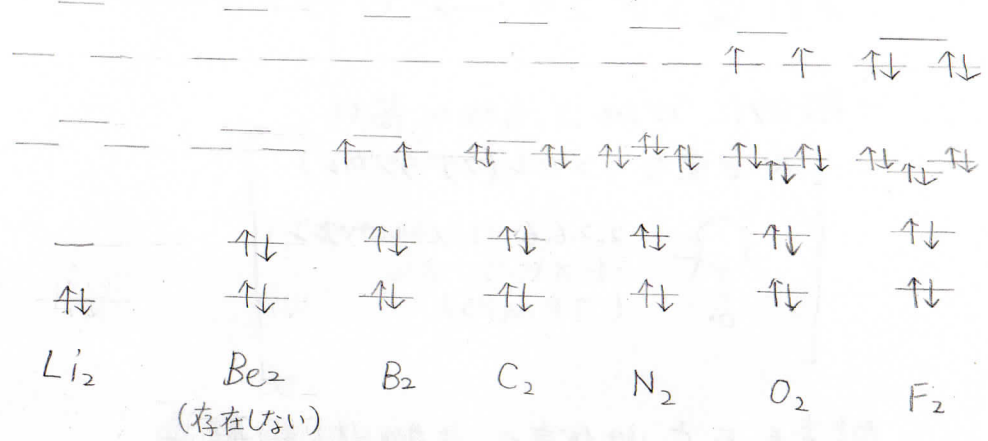 Li₂ Be₂ B₂ C₂ N₂ O₂ F₂
(存在しない)